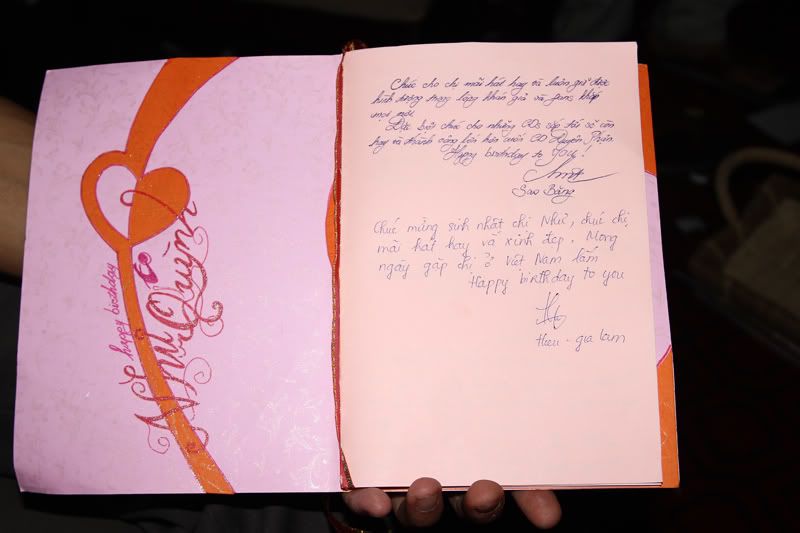 happy birthday
to
Như Quỳnh
Chúc cho chị mãi hát hay và luôn giữ được
hình tượng trong lòng khán giả và fans khắp
mọi nơi.
Đặc biệt chúc cho những CDs sắp tới sẽ còn
hay và thành công hơn cuốn CD Duyên Phận.
Happy birthday to You!
Sao Băng
Chúc mừng sinh nhật chị Như, chúc chị
mãi hát hay và xinh đẹp. Mong
ngày gặp chị ở Việt Nam lắm
Happy birthday to you
- gia lam